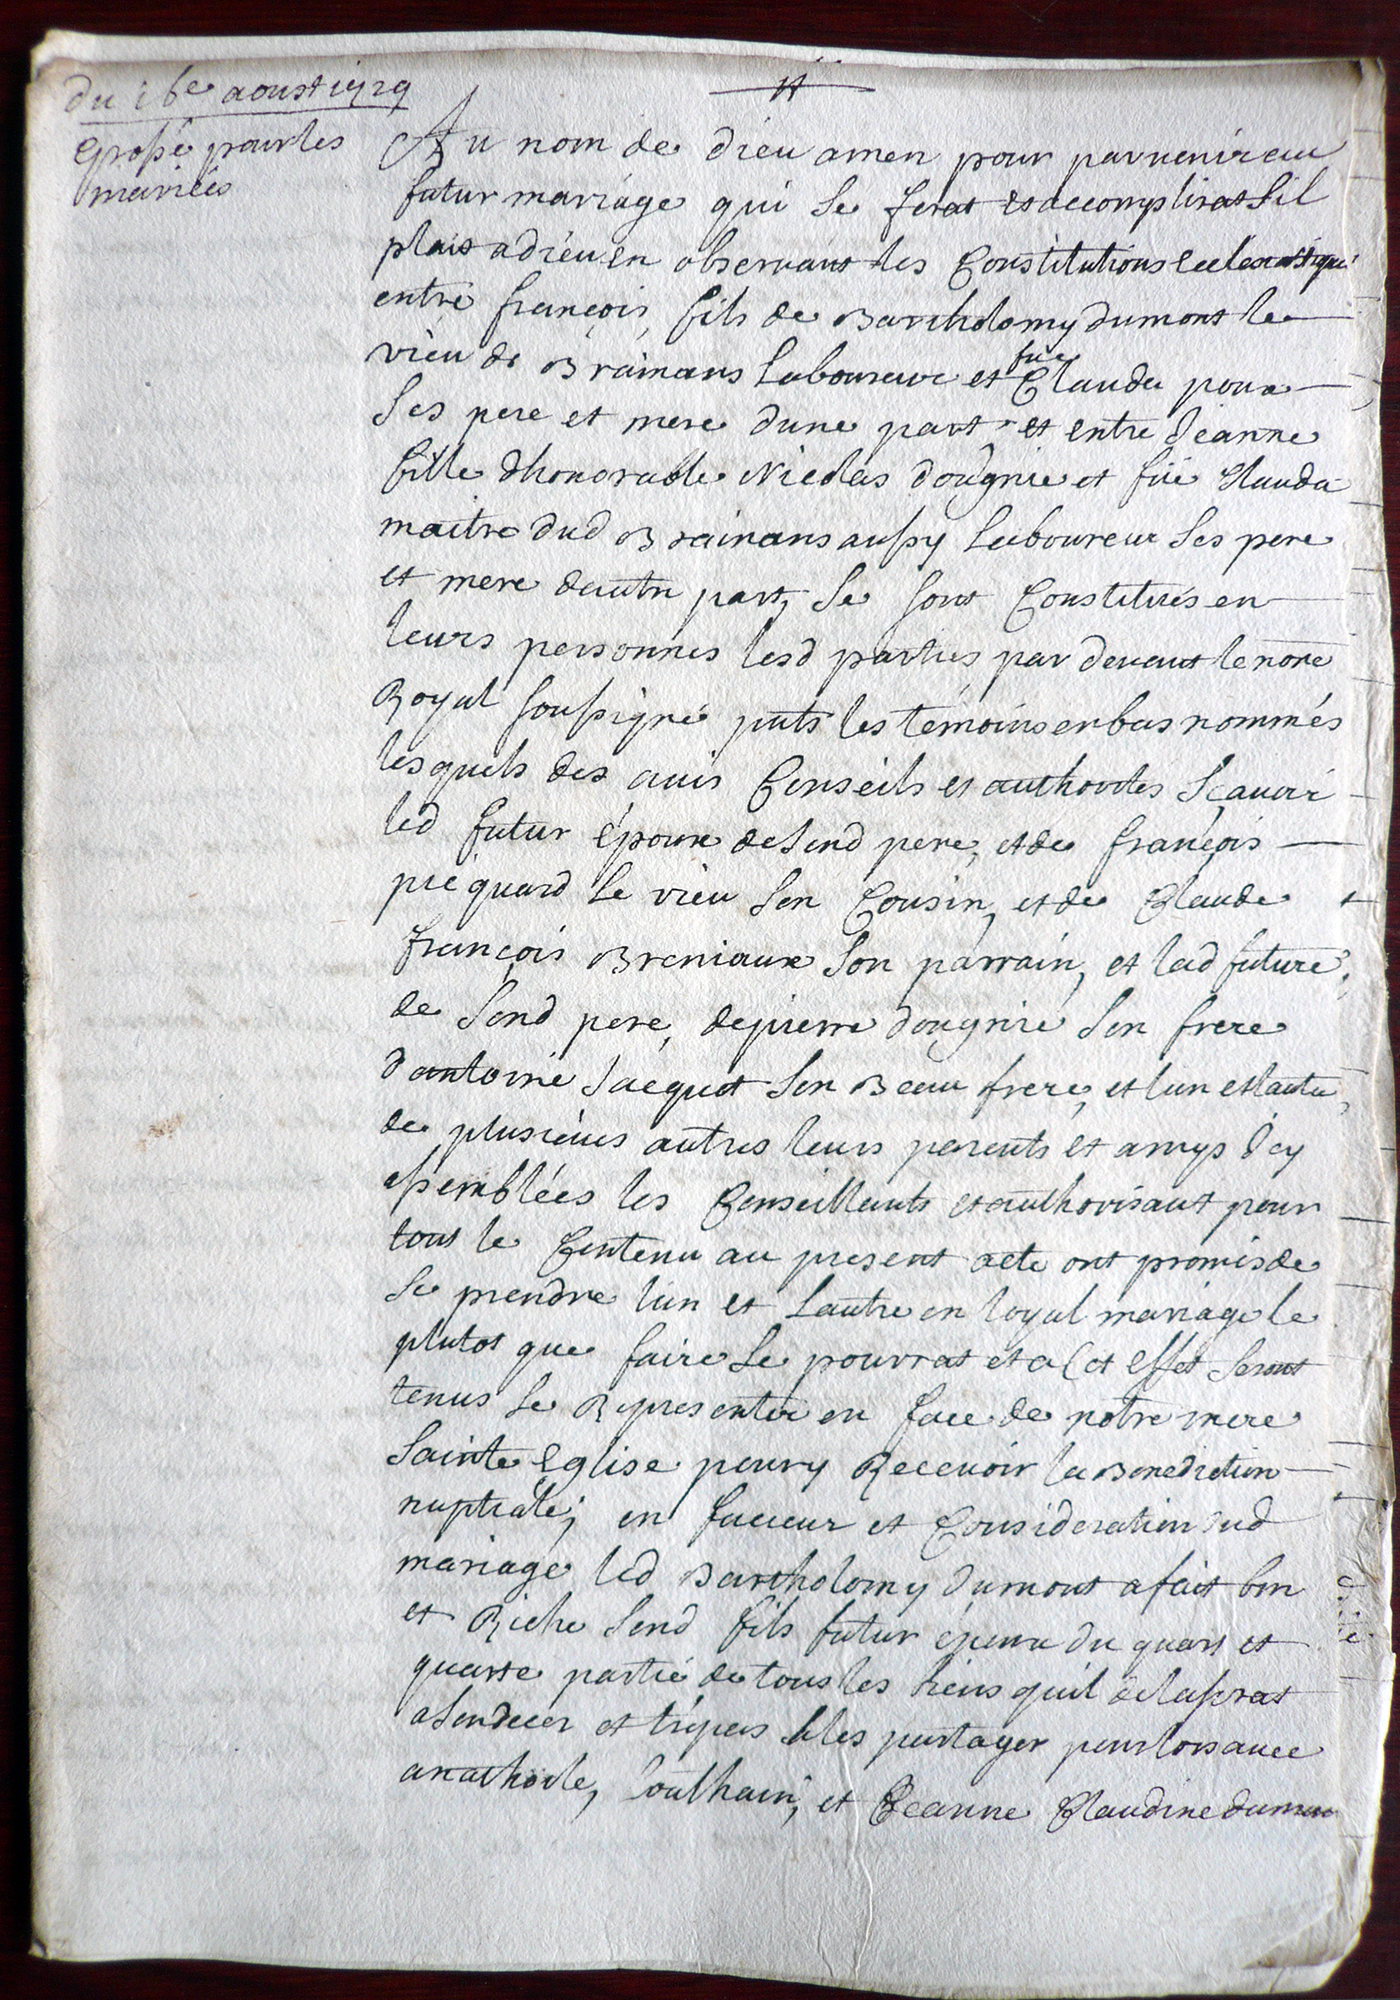 du 16e aoust 1729
Grossé pour les
mariées
Au nom de dieu amen pour parvenir au
futur mariage qui se ferat et accomplirat sil
plait a dieu en observant les Constitutions Eclesiastiques
entre françois fils de Bartholomy dumont le
vieu de Brainans Laboureur et fue Clauda poux
ses pere et mere dune part, et entre Jeanne
fille dhonorable Nicolas dougnie et fue Clauda
maitre dud Brainans aussy Laboureur ses pere
et mere dautre part, se sont Constitués en
leurs personnes lesd parties par devant le nore
Royal soussigné pnts les témoins en bas nommés
lesquels des avis Conseils et authorités Scavoir
led futur époux de Sond pere, et de françois
piéquard le vieu Son Cousin, et de Claude
françois Breniaux Son parrain, et lad future
de Sond pere, de pierre dougnie Son frere
dantoine Jacquot Son Beau frere, et lun et lautre
de plusieurs autres leurs parents et amys Icy
assemblées les Conseillants et authorisant pour
tout le Contenu au present acte ont promis de
se prendre lun et Lautre en loyal mariage le
plutot que faire se pourrat et a Cet effet seront
tenus se Representer en face de notre mere
Sainte Eglise pour y Recevoir la Benediction
nuptiale; en faveur et Consideration dud
mariage led Bartholomy dumont a fait bon
et Riche Sond fils futur époux du quart et
quarte partie de tous les biens quil delaisserat
a Son deces et trépas a les partager pour lors avec
anathoile, et Jeanne Claudine dumont